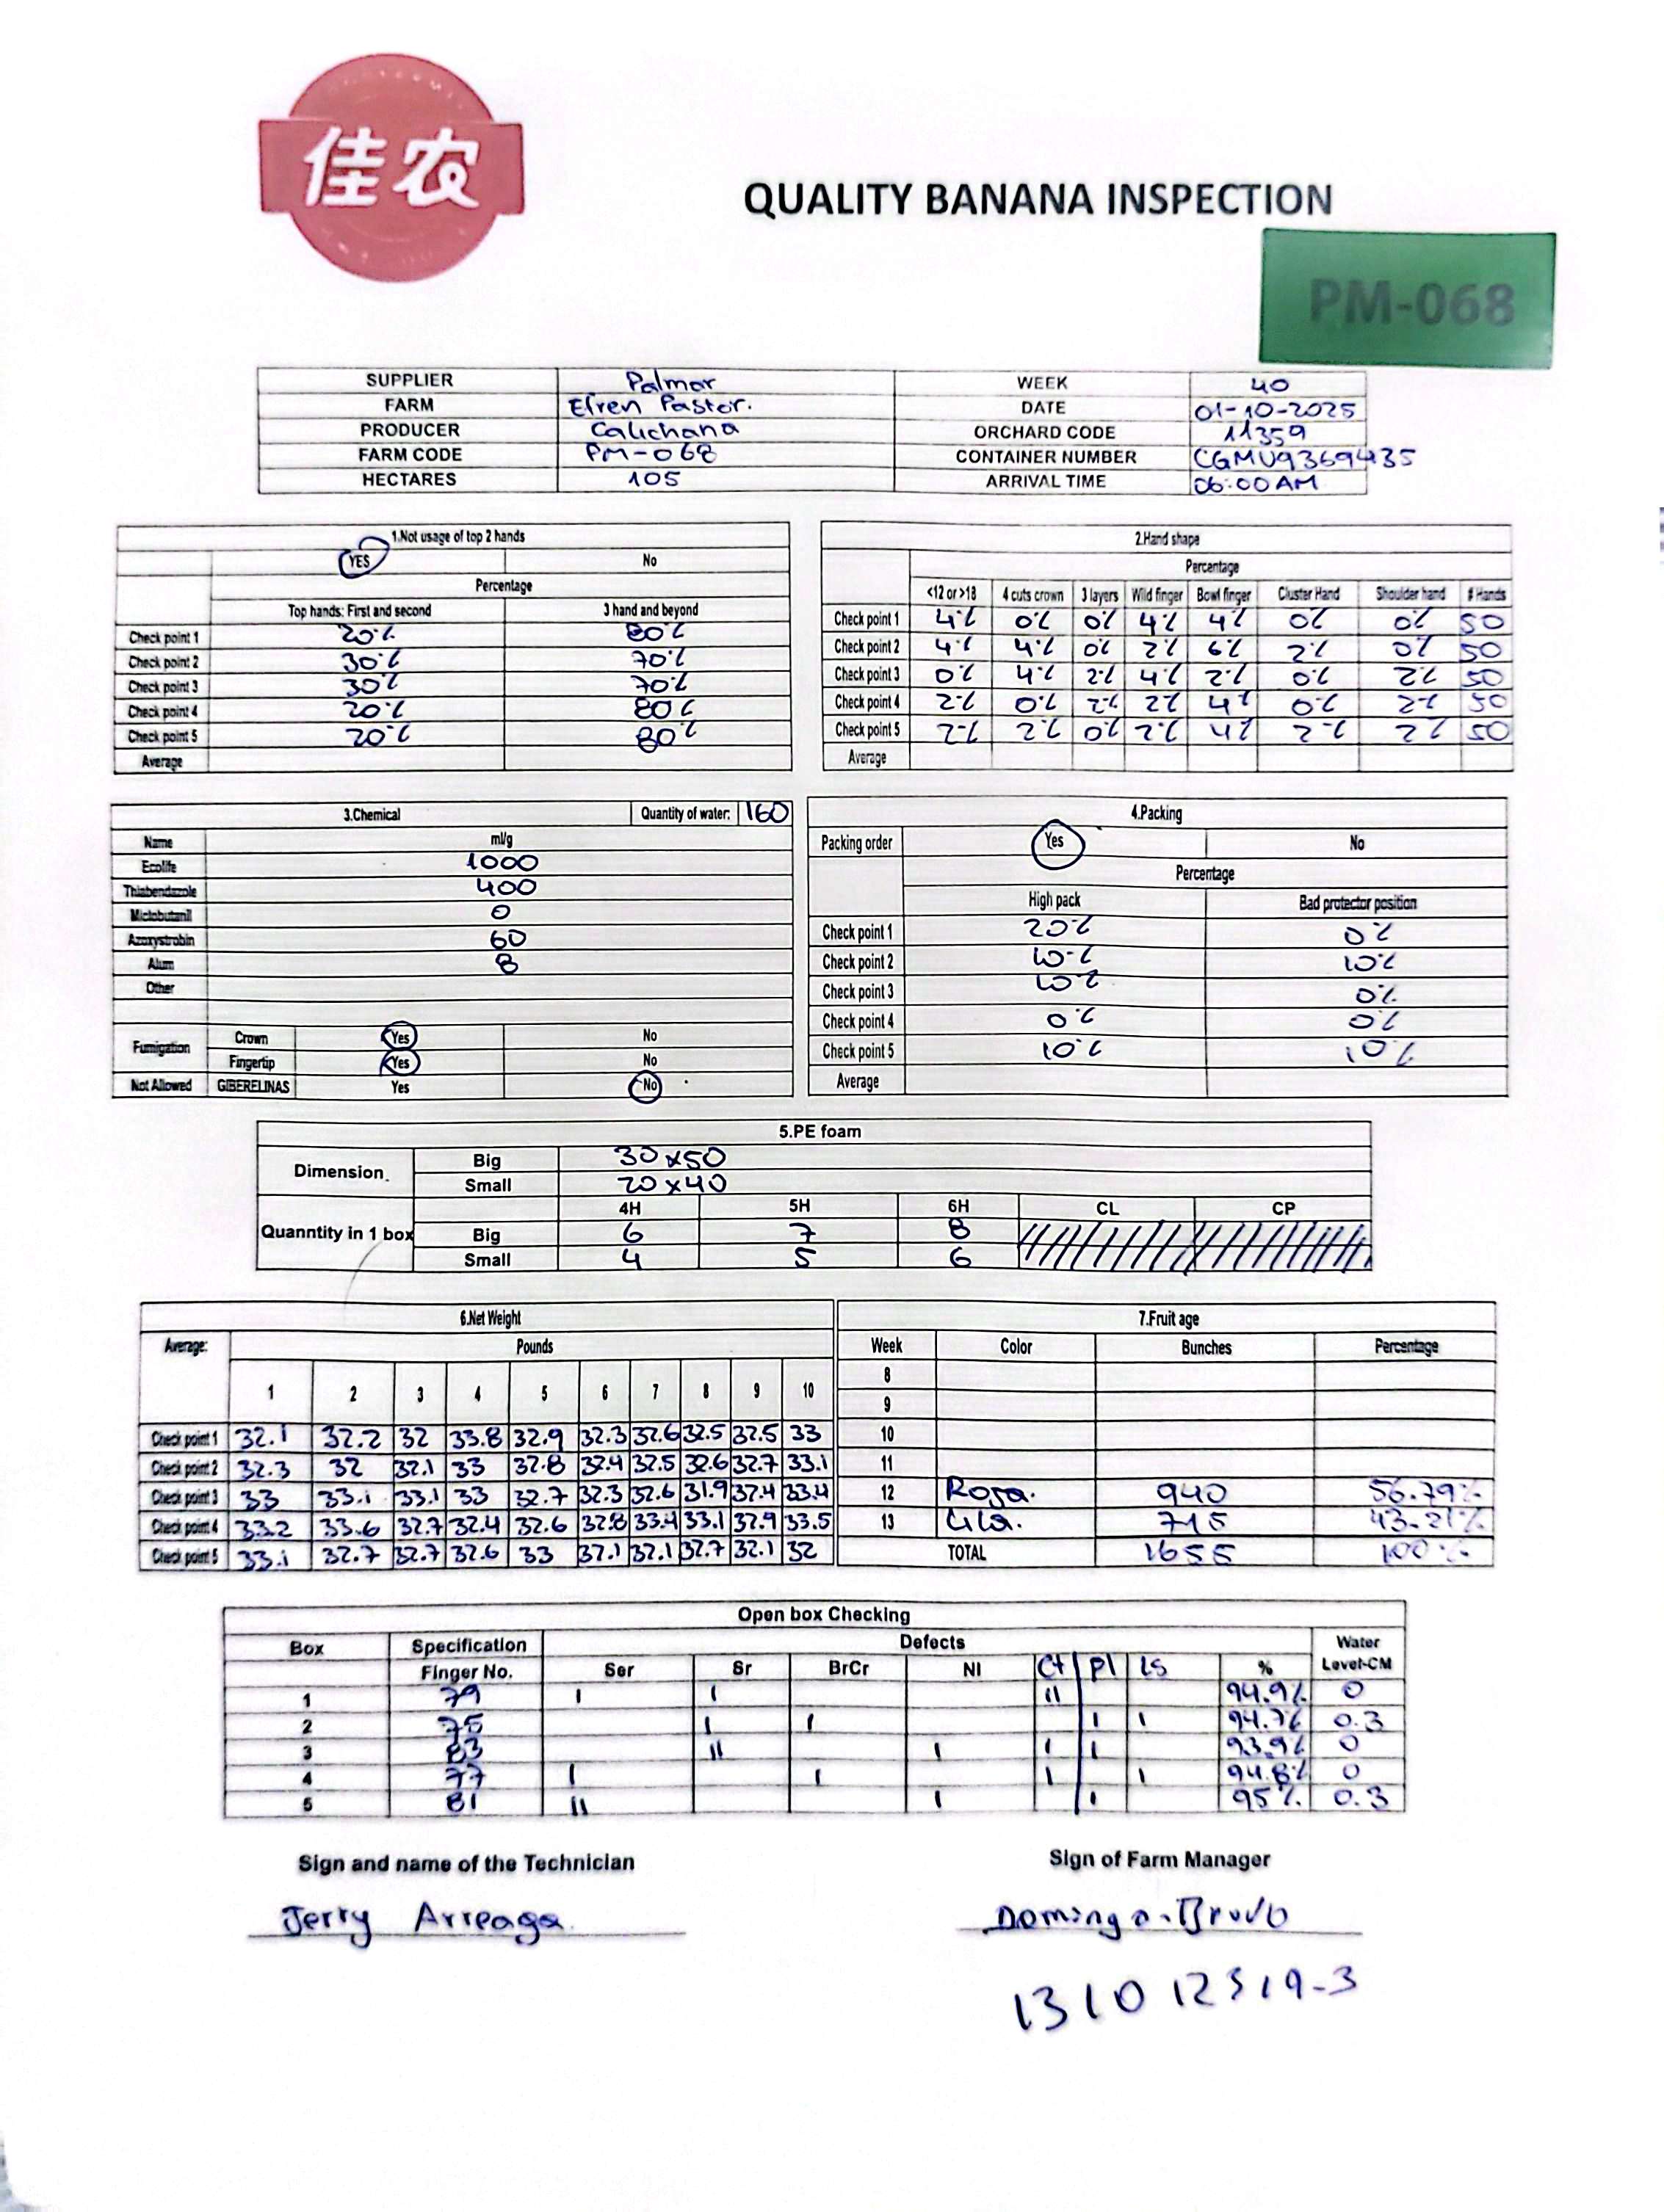 佳农
QUALITY BANANA INSPECTION
PM-068
SUPPLIER Palmar WEEK 40
FARM Efren Pastor. DATE 01-10-2025
PRODUCER Calichana ORCHARD CODE 11359
FARM CODE PM-068 CONTAINER NUMBER CGMU9369435
HECTARES 105 ARRIVAL TIME 06:00 AM
1.Not usage of top 2 hands
YES No
Percentage
Top hands: First and second 3 hand and beyond
Check point 1 20% 80%
Check point 2 30% 70%
Check point 3 30% 70%
Check point 4 20% 80%
Check point 5 20% 80%
Average
2.Hand shape
Percentage
<12 or >18 4 cuts crown 3 layers Wild finger Bowl finger Cluster Hand Shoulder hand # Hands
Check point 1 4% 0% 0% 4% 4% 0% 0% 50
Check point 2 4% 4% 0% 2% 6% 2% 0% 50
Check point 3 0% 4% 2% 4% 2% 0% 2% 50
Check point 4 2% 0% 2% 2% 4% 0% 2% 50
Check point 5 2% 2% 0% 2% 4% 2% 2% 50
Average
3.Chemical Quantity of water: 160
Name ml/g
Ecolife 1000
Thiabendazole 400
Miclobutanil 0
Azoxystrobin 60
Alum 8
Other
Fumigation Crown Yes No
Fingertip Yes No
Not Allowed GIBERELINAS Yes No
4.Packing
Packing order Yes No
Percentage
High pack Bad protector position
Check point 1 20% 0%
Check point 2 10% 10%
Check point 3 10% 0%
Check point 4 0% 0%
Check point 5 10% 10%
Average
5.PE foam
Dimension Big 30x50
Small 20x40
4H 5H 6H CL CP
Quanntity in 1 box Big 6 7 8
Small 4 5 6
6.Net Weight
Average: Pounds
1 2 3 4 5 6 7 8 9 10
Check point 1 32.1 32.2 32 33.8 32.9 32.3 32.6 32.5 32.5 33
Check point 2 32.3 32 32.1 33 32.8 32.4 32.5 32.6 32.7 33.1
Check point 3 33 33.1 33.1 33 32.7 32.3 32.6 31.9 32.4 33.4
Check point 4 33.2 33.6 32.7 32.4 32.6 32.8 33.4 33.1 32.9 33.5
Check point 5 33.1 32.7 32.7 32.6 33 32.1 32.1 32.7 32.1 32
7.Fruit age
Week Color Bunches Percentage
8
9
10
11
12 Roja. 940 56.79%
13 Lila. 715 43.21%
TOTAL 1655 100%
Open box Checking
Box Specification Defects Water
Finger No. Ser Sr BrCr NI Ct Pl LS % Level-CM
1 79 I I II 94.9% 0
2 75 I I I I 94.7% 0.3
3 83 II I I I 93.9% 0
4 77 I I I I 94.8% 0
5 81 II I I 95% 0.3
Sign and name of the Technician Sign of Farm Manager
Jerry Arreaga. Domingo Bravo
131012319-3